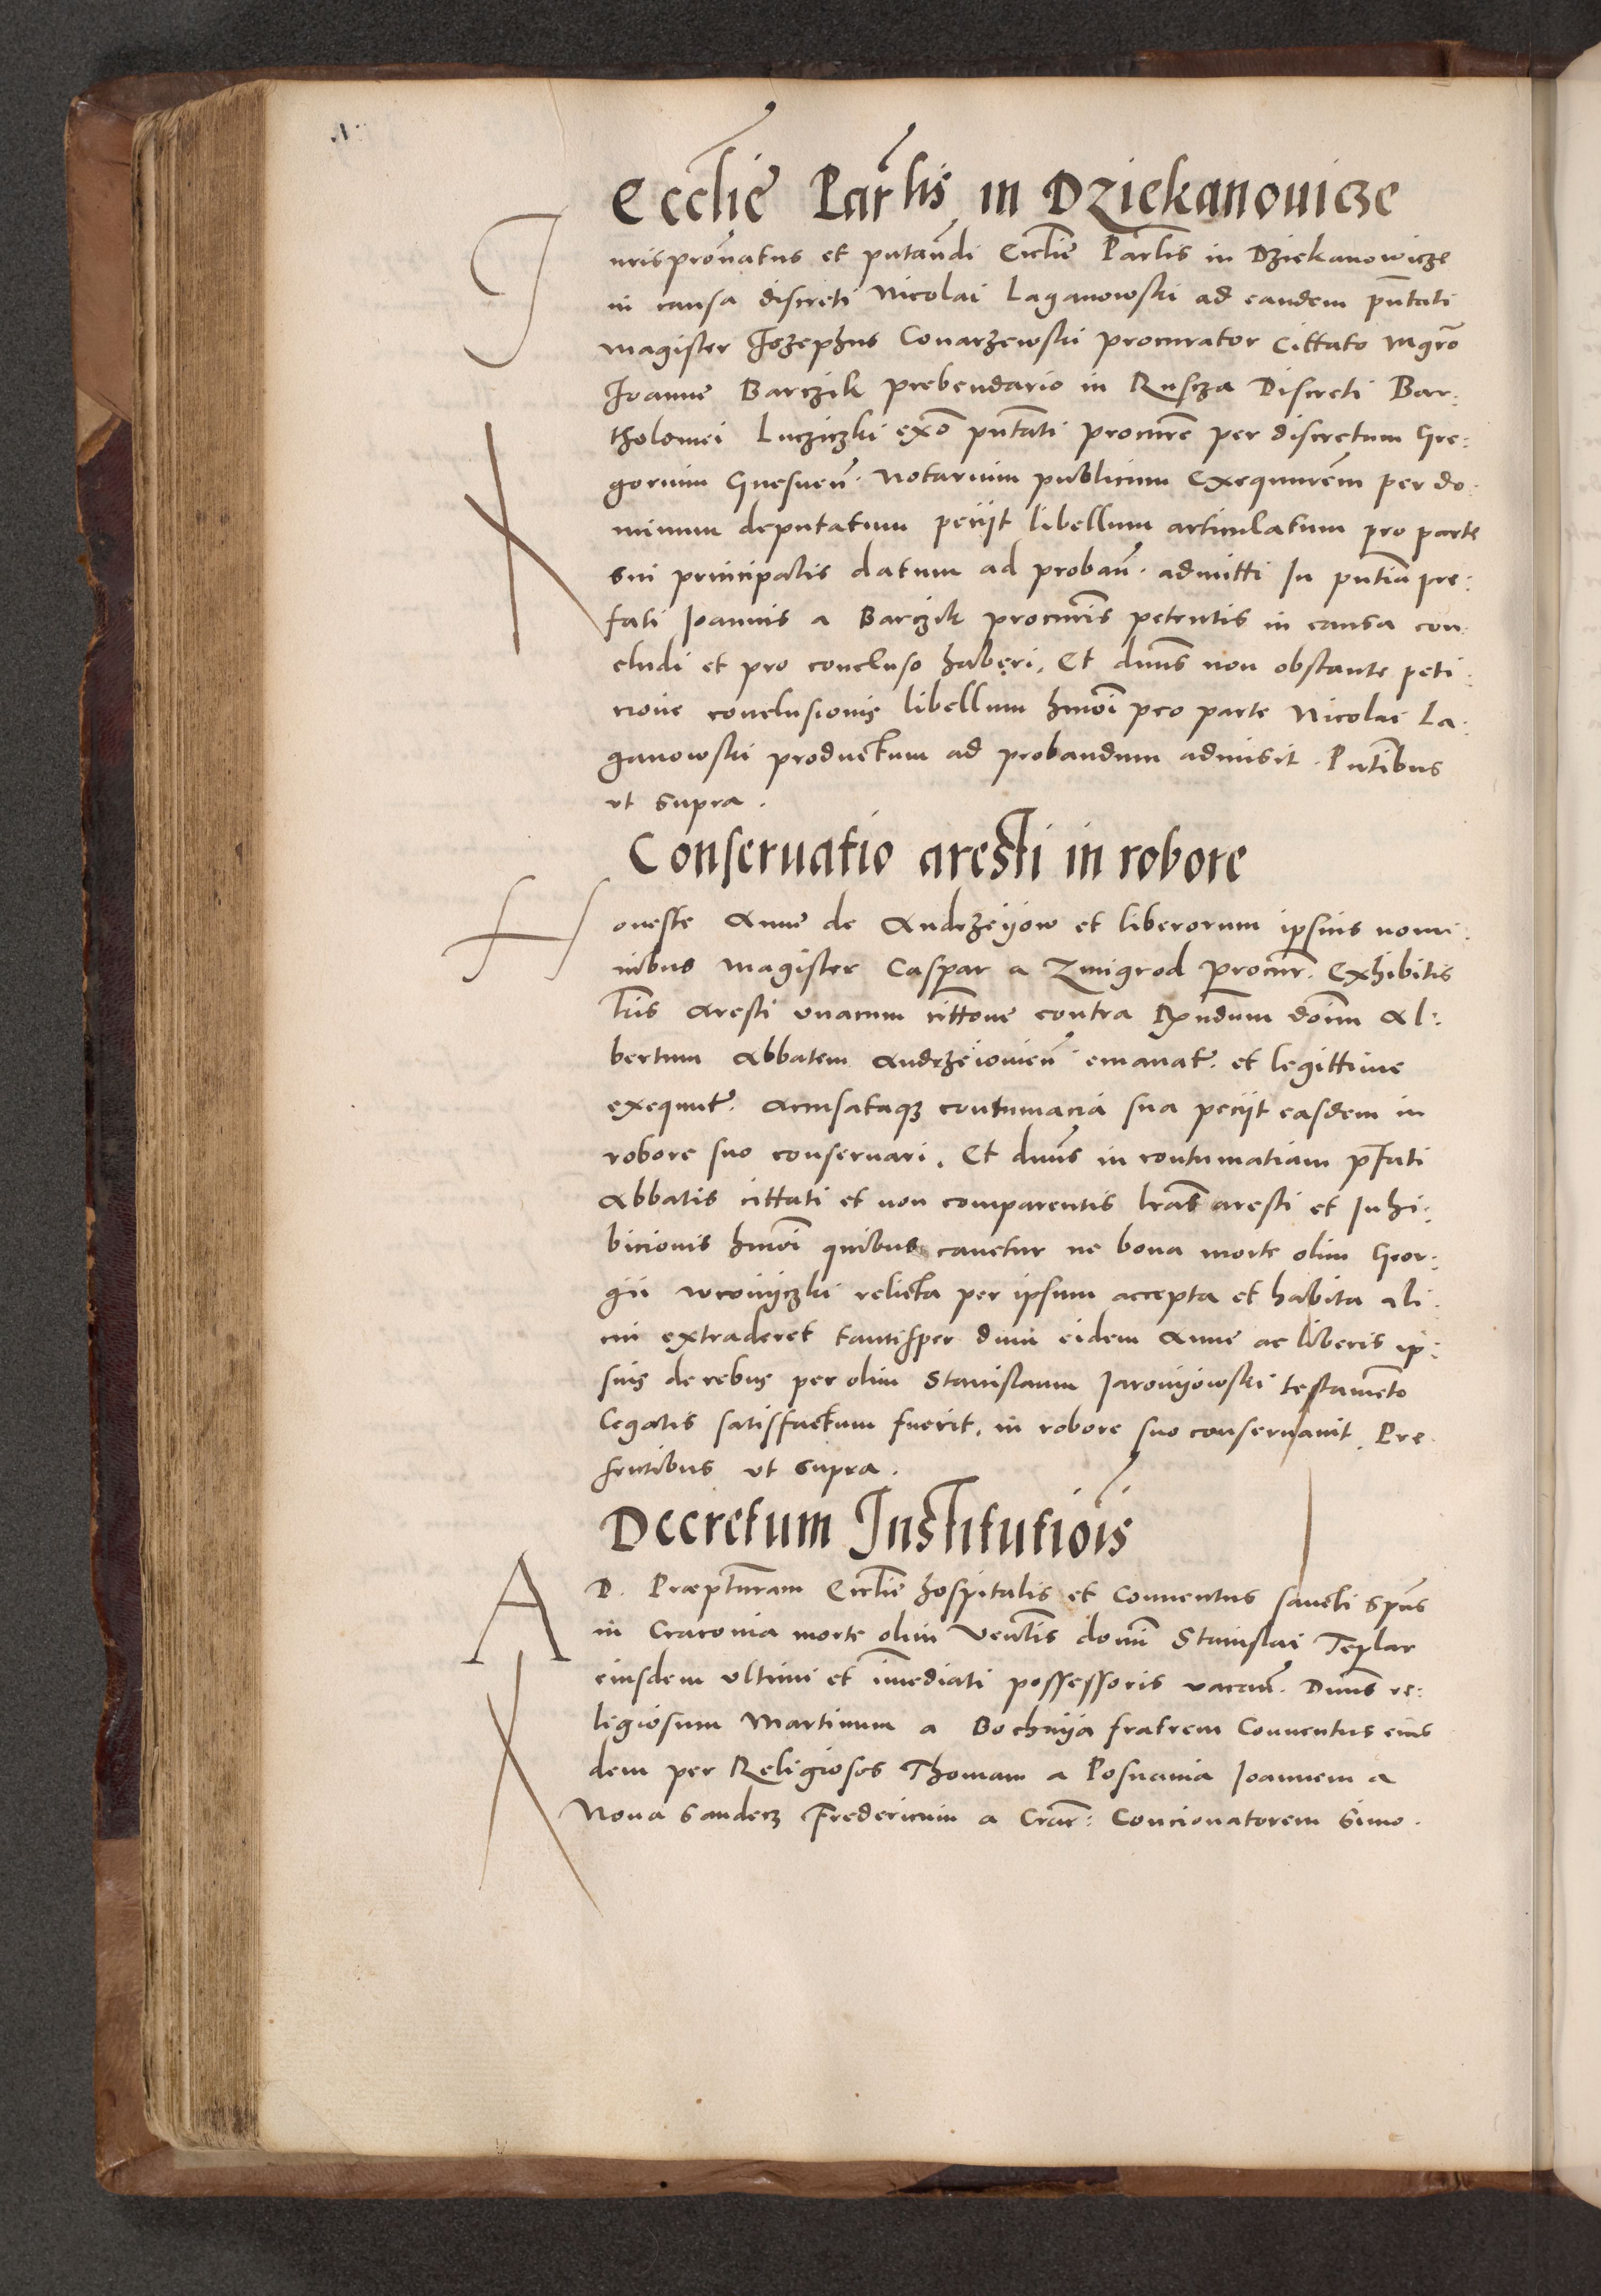 Ecclie Parlis in Dziekanouicze
Iurispronatus et putandi Ecclie Parlis in Dziekanowicze
in causa discreti Nicolai Laganowski ad eandem puntati
magister Jozephus Conarzewski procurator Cittato mgro
Joanne Barczik prebendario in Ruscza Discreti Bar:
tholomei Lucziczki exo puntati procure per discretum Gre:
gorium Gnesnen. Notarium publicum Exequurem per do:
minum deputatum peciit libellum articulatum pro parte
sui principalis datum ad proban. admitti In putia pre:
fati Joannis a Barczik procuris petentis in causa con:
cludi et pro concluso haberi. Et dnus non obstante peti:
cione conclusionis libellum hmoi pro parte Nicolai La:
ganowski productum ad probandum admisit. Putibus
vt supra.
Conseruatio aresti in robore
Honeste Anne de Andrzeyow et liberorum ipsius nomi:
nibus magister Caspar a Zmigrod procur. Exhibitis
lris aresti vnacum cittone contra Rndum donm Al:
bertum Abbatem Andrzeiouien emanat. et legittime
exequut. Acusataqz contumacia sua peciit easdem in
robore suo conseruari. Et dnus in contumatiam pfati
Abbatis cittati et non comparentis lras aresti et Inhi:
bicionis hmoi quibus cauetur ne bona morte olim Geor:
gii relicta per ipsum accepta et habita ali:
cui extraderet tantisper dum eidem Anne ac liberis ip:
sius de rebus per olim Stanislaum testamento
legatis satisfactum fuerit, in robore suo conseruauit. Pre
sentibus vt supra.
Decretum Institutiois
AD. Præpturam Ecclie hospitalis et Conuentus sancti spus
in Cracouia morte olim Venlis domi Stanislai Teplar
eiusdem vltimi et imediati possessoris vacan. Dnus re:
legiosum Martinum a Bochnya fratrem Conuentus eius
dem per Religiosos Thomam a Posnania Joannem a
Noua Sandecz Fredericum a Crac: Concionatorem Simo.